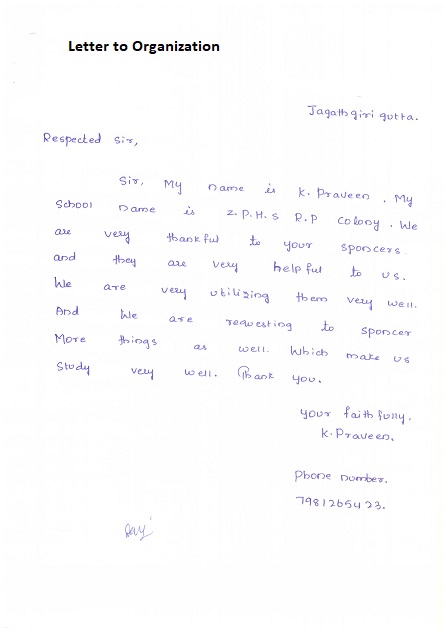 Letter to Organization
Jagathgiri gutta.
Respected Sir,
Sir, My name is K. Praveen . My
School name is Z.P.H.S R.P Colony . We
are very thankful to your sponcers.
and they are very helpful to us.
We are very utilizing them very well.
And We are requesting to sponcer
More things as well. Which make us
Study very well. Thank you.
your faithfully.
K. Praveen.
Phone number.
7981265423.